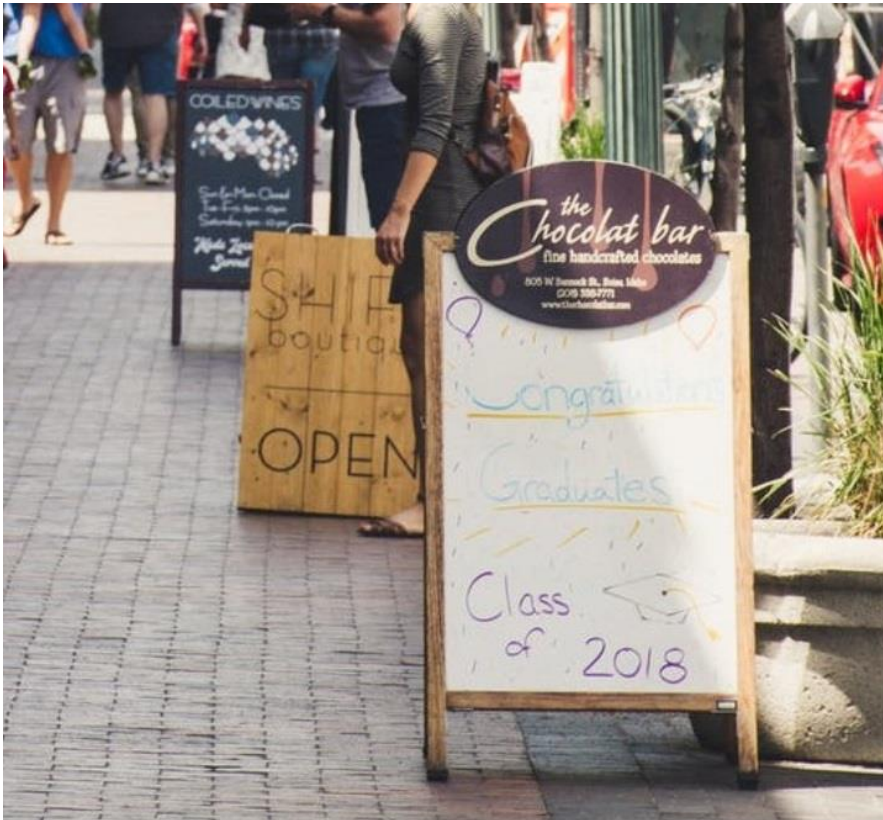 COILED WINES
Sun & Mon Closed
Saturday
SHIF
boutiq
OPEN
the
Chocolat bar
fine handcrafted chocolates
805 W Bannock St., Boise, Idaho
(208) 338-7771
www.thechocolatbar.com
Congratulations
Graduates
Class
of
2018